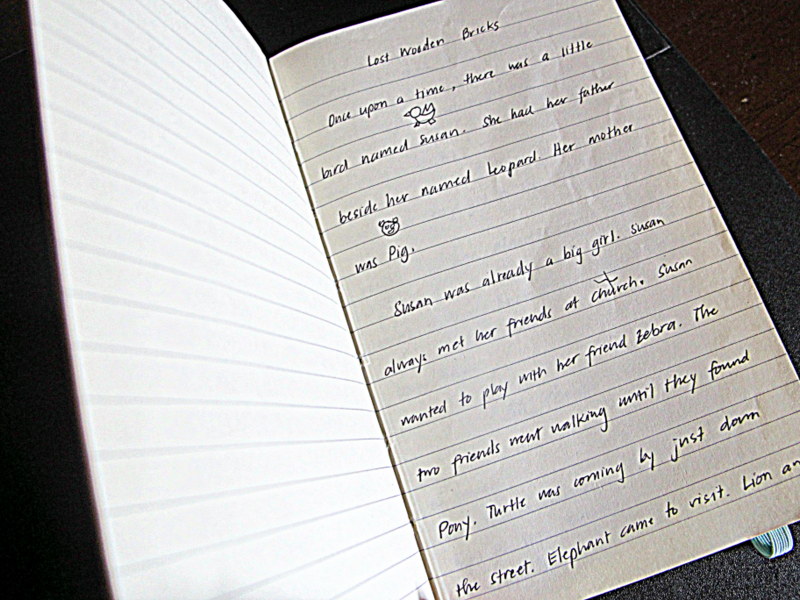 Lost Wooden Bricks
Once upon a time, there was a little
bird named Susan. She had her father
beside her named Leopard. Her mother
was Pig.
Susan was already a big girl. Susan
always met her friends at church. Susan
wanted to play with her friend Zebra. The
two friends went walking until they found
Pony. Turtle was coming by just down
the street. Elephant came to visit. Lion an